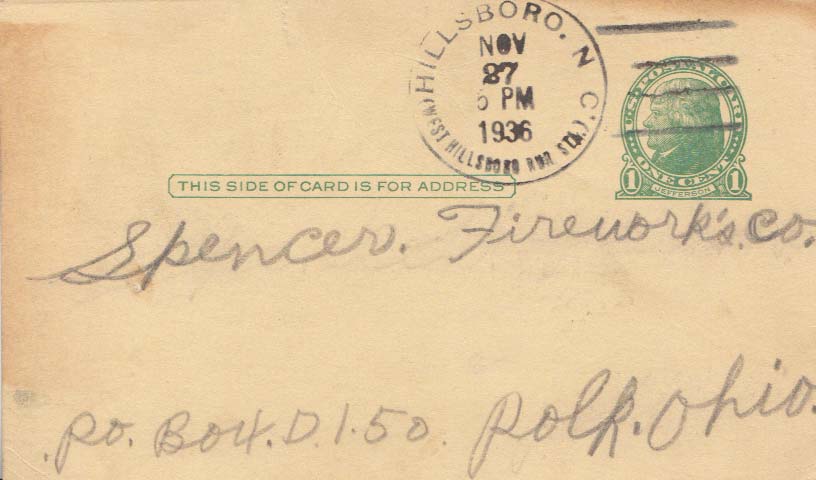 HILLSBORO, N C.
NOV
27
5 PM
1936
(WEST HILLSBORO RUR. STA.)
U·S·POSTAL·CARD
1 ONE CENT 1
JEFFERSON
THIS SIDE OF CARD IS FOR ADDRESS
Spencer. Firework's.co.
.po. Box.D.1.50. Polk.Ohio.